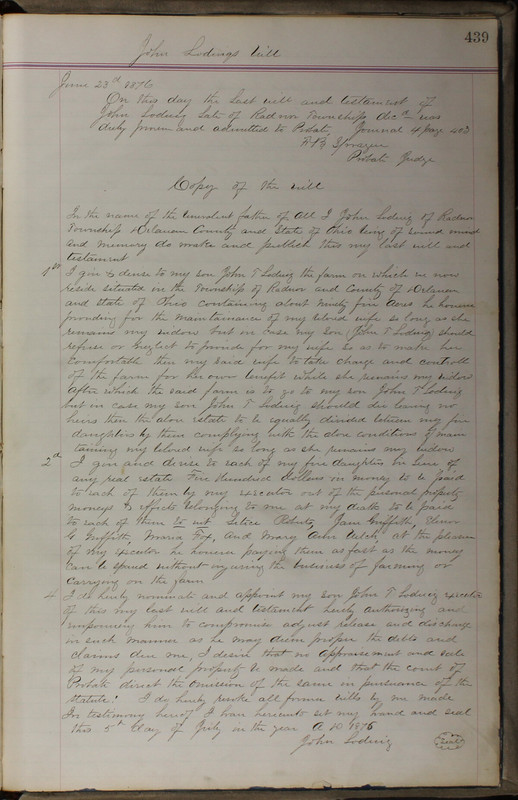 439
John Lodwigs Will
June 23rd 1876
On this day the last will and testament of
John Lodwig late of Radnor Township decd was
duly proven and admitted to Probate, Journal 4 page 403
Probate Judge
Copy of the Will
In the name of the benevolent father of all I John Lodwig of Radnor
Township Delaware County and State of Ohio being of sound mind
and memory do make and publish this my last will and
testament
1st I give & devise to my son John T Lodwig the farm on which we now
reside situated in the Township of Radnor and County of Delaware
and State of Ohio containing about ninety five acres he however
providing for the maintainance of my beloved wife so long as she
remains my widow but in case my son John T Lodwig should
refuse or neglect to provide for my wife so as to make her
comfortable then my said wife to take charge and controll
of the farm for her own benefit while she remains my widow
after which the said farm is to go to my son John T Lodwig
but in case my son John T Lodwig should die leaving no
heirs then the above estate to be equally divided between my five
daughters by them complying with the above conditions of main
taining my beloved wife so long as she remains my widow
2d I give and devise to each of my five daughters in lieu of
any real estate Five Hundred dollars in money to be paid
to each of them by my executor out of the personal property
moneys & effects belonging to me at my death to be paid
to each of them to wit Roberts, Jane Griffith, Elinor
G Griffith, Maria Fox, and Mary Ann at the pleasure
of my executor he however paying them as fast as the money
can be spared without injuring the business of farming or
carrying on the farm
4 I do hereby nominate and appoint my son John T Lodwig executor
of this my last will and testament hereby authorizing and
empowering him to compromise adjust release and discharge
in such manner as he may deem proper the debts and
claims due me, I desire that no appraisement and sale
of my personal property be made and that the court of
Probate direct the omission of the same in pursuance of the
Statute. I do hereby revoke all former wills by me made
In testimony hereof I have hereunto set my hand and seal
this 5th day of July in the year A D 1875
John Lodwig
seal